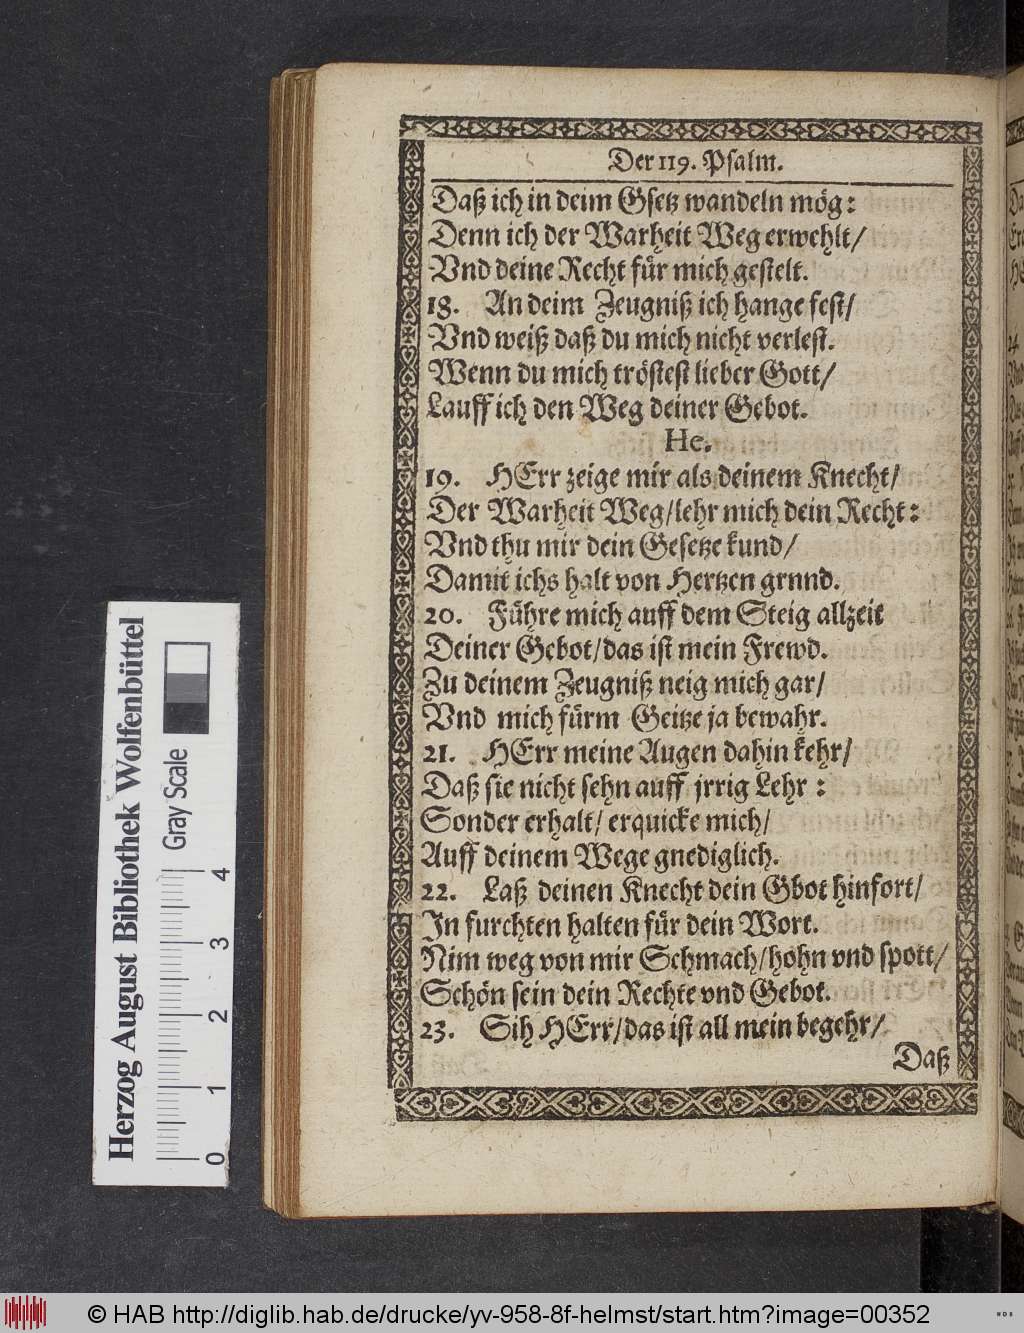 Der 119. Psalm.
Daß ich in deim Gsetz wandeln mög:
Denn ich der Warheit Weg erwehlt/
Vnd deine Recht für mich gestelt.
18. An deim Zeugniß ich hange fest/
Vnd weiß daß du mich nicht verlest.
Wenn du mich tröstest lieber Gott/
Lauff ich den Weg deiner Gebot.
He.
19. HErr zeige mir als deinem Knecht/
Der Warheit Weg/lehr mich dein Recht:
Vnd thu mir dein Gesetze kund/
Damit ichs halt von Hertzen grnnd.
20. Führe mich auff dem Steig allzeit
Deiner Gebot/das ist mein Frewd.
Zu deinem Zeugniß neig mich gar/
Vnd mich fürm Geitze ja bewahr.
21. HErr meine Augen dahin kehr/
Daß sie nicht sehn auff jrrig Lehr:
Sonder erhalt/ erquicke mich/
Auff deinem Wege gnediglich.
22. Laß deinen Knecht dein Gbot hinfort/
In furchten halten für dein Wort.
Nim weg von mir Schmach/hohn vnd spott/
Schön sein dein Rechte vnd Gebot.
23. Sih HErr/das ist all mein begehr/
Daß
Herzog August Bibliothek Wolfenbüttel
Gray Scale
0 1 2 3 4
© HAB http://diglib.hab.de/drucke/yv-958-8f-helmst/start.htm?image=00352